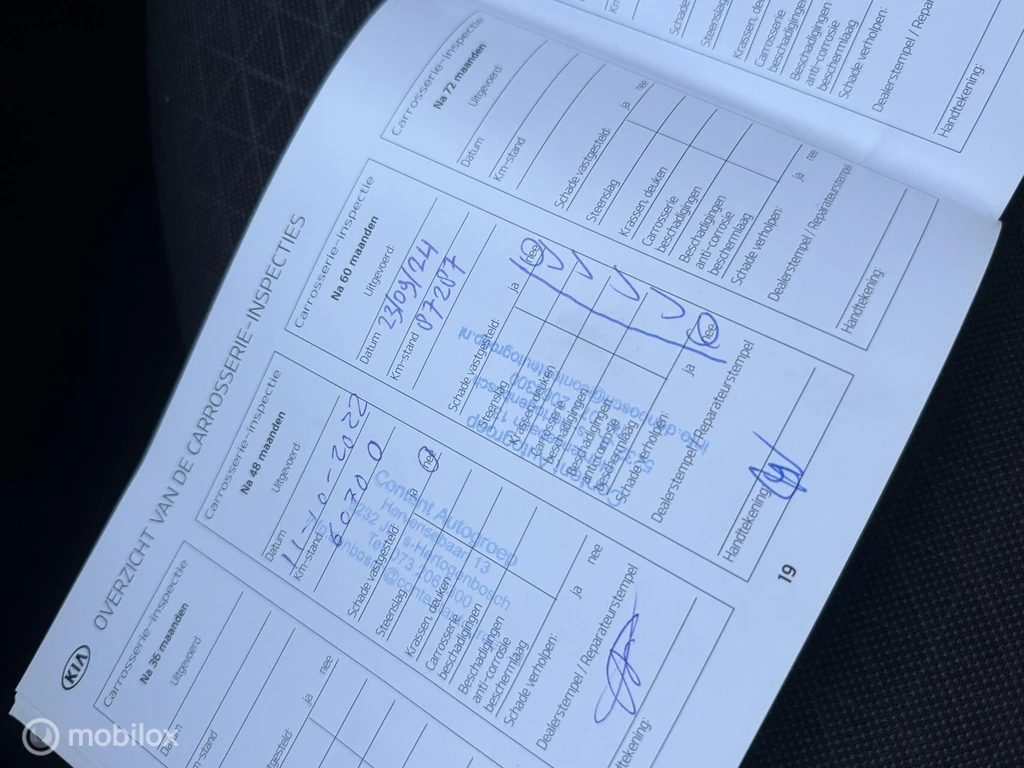 KIA OVERZICHT VAN DE CARROSSERIE-INSPECTIES
Carrosserie-inspectie
Na 36 maanden
Uitgevoerd:
Datum
-stand
ja nee
Carrosserie-inspectie
Na 48 maanden
Uitgevoerd:
Datum 11-10-2022
Km-stand 60700
Schade vastgesteld: ja nee
Steenslag
Krassen, deuken
Carrosserie
beschadigingen
Beschadigingen
anti-corrosie
beschermlaag
Schade verholpen: ja nee
Dealerstempel / Reparateurstempel
Content Autogroep
13
's-Hertogenbosch
Handtekening:
Carrosserie-inspectie
Na 60 maanden
Uitgevoerd:
Datum 23/09/24
Km-stand 87287
Schade vastgesteld: ja nee
Steenslag
Krassen, deuken
Carrosserie
beschadigingen
Beschadigingen
anti-corrosie
beschermlaag
Schade verholpen: ja nee
Dealerstempel / Reparateurstempel
Handtekening:
Carrosserie-inspectie
Na 72 maanden
Uitgevoerd:
Datum
Km-stand
Schade vastgesteld: ja nee
Steenslag
Krassen, deuken
Carrosserie
beschadigingen
Beschadigingen
anti-corrosie
beschermlaag
Schade verholpen: ja nee
Dealerstempel / Reparateurstempel
Handtekening:
19
Schade
Steenslag
Krassen, deu
Carrosserie
beschadigingen
Beschadigingen
anti-corrosie
beschermlaag
Schade verholpen:
Dealerstempel / Repar
Handtekening:
mobilox